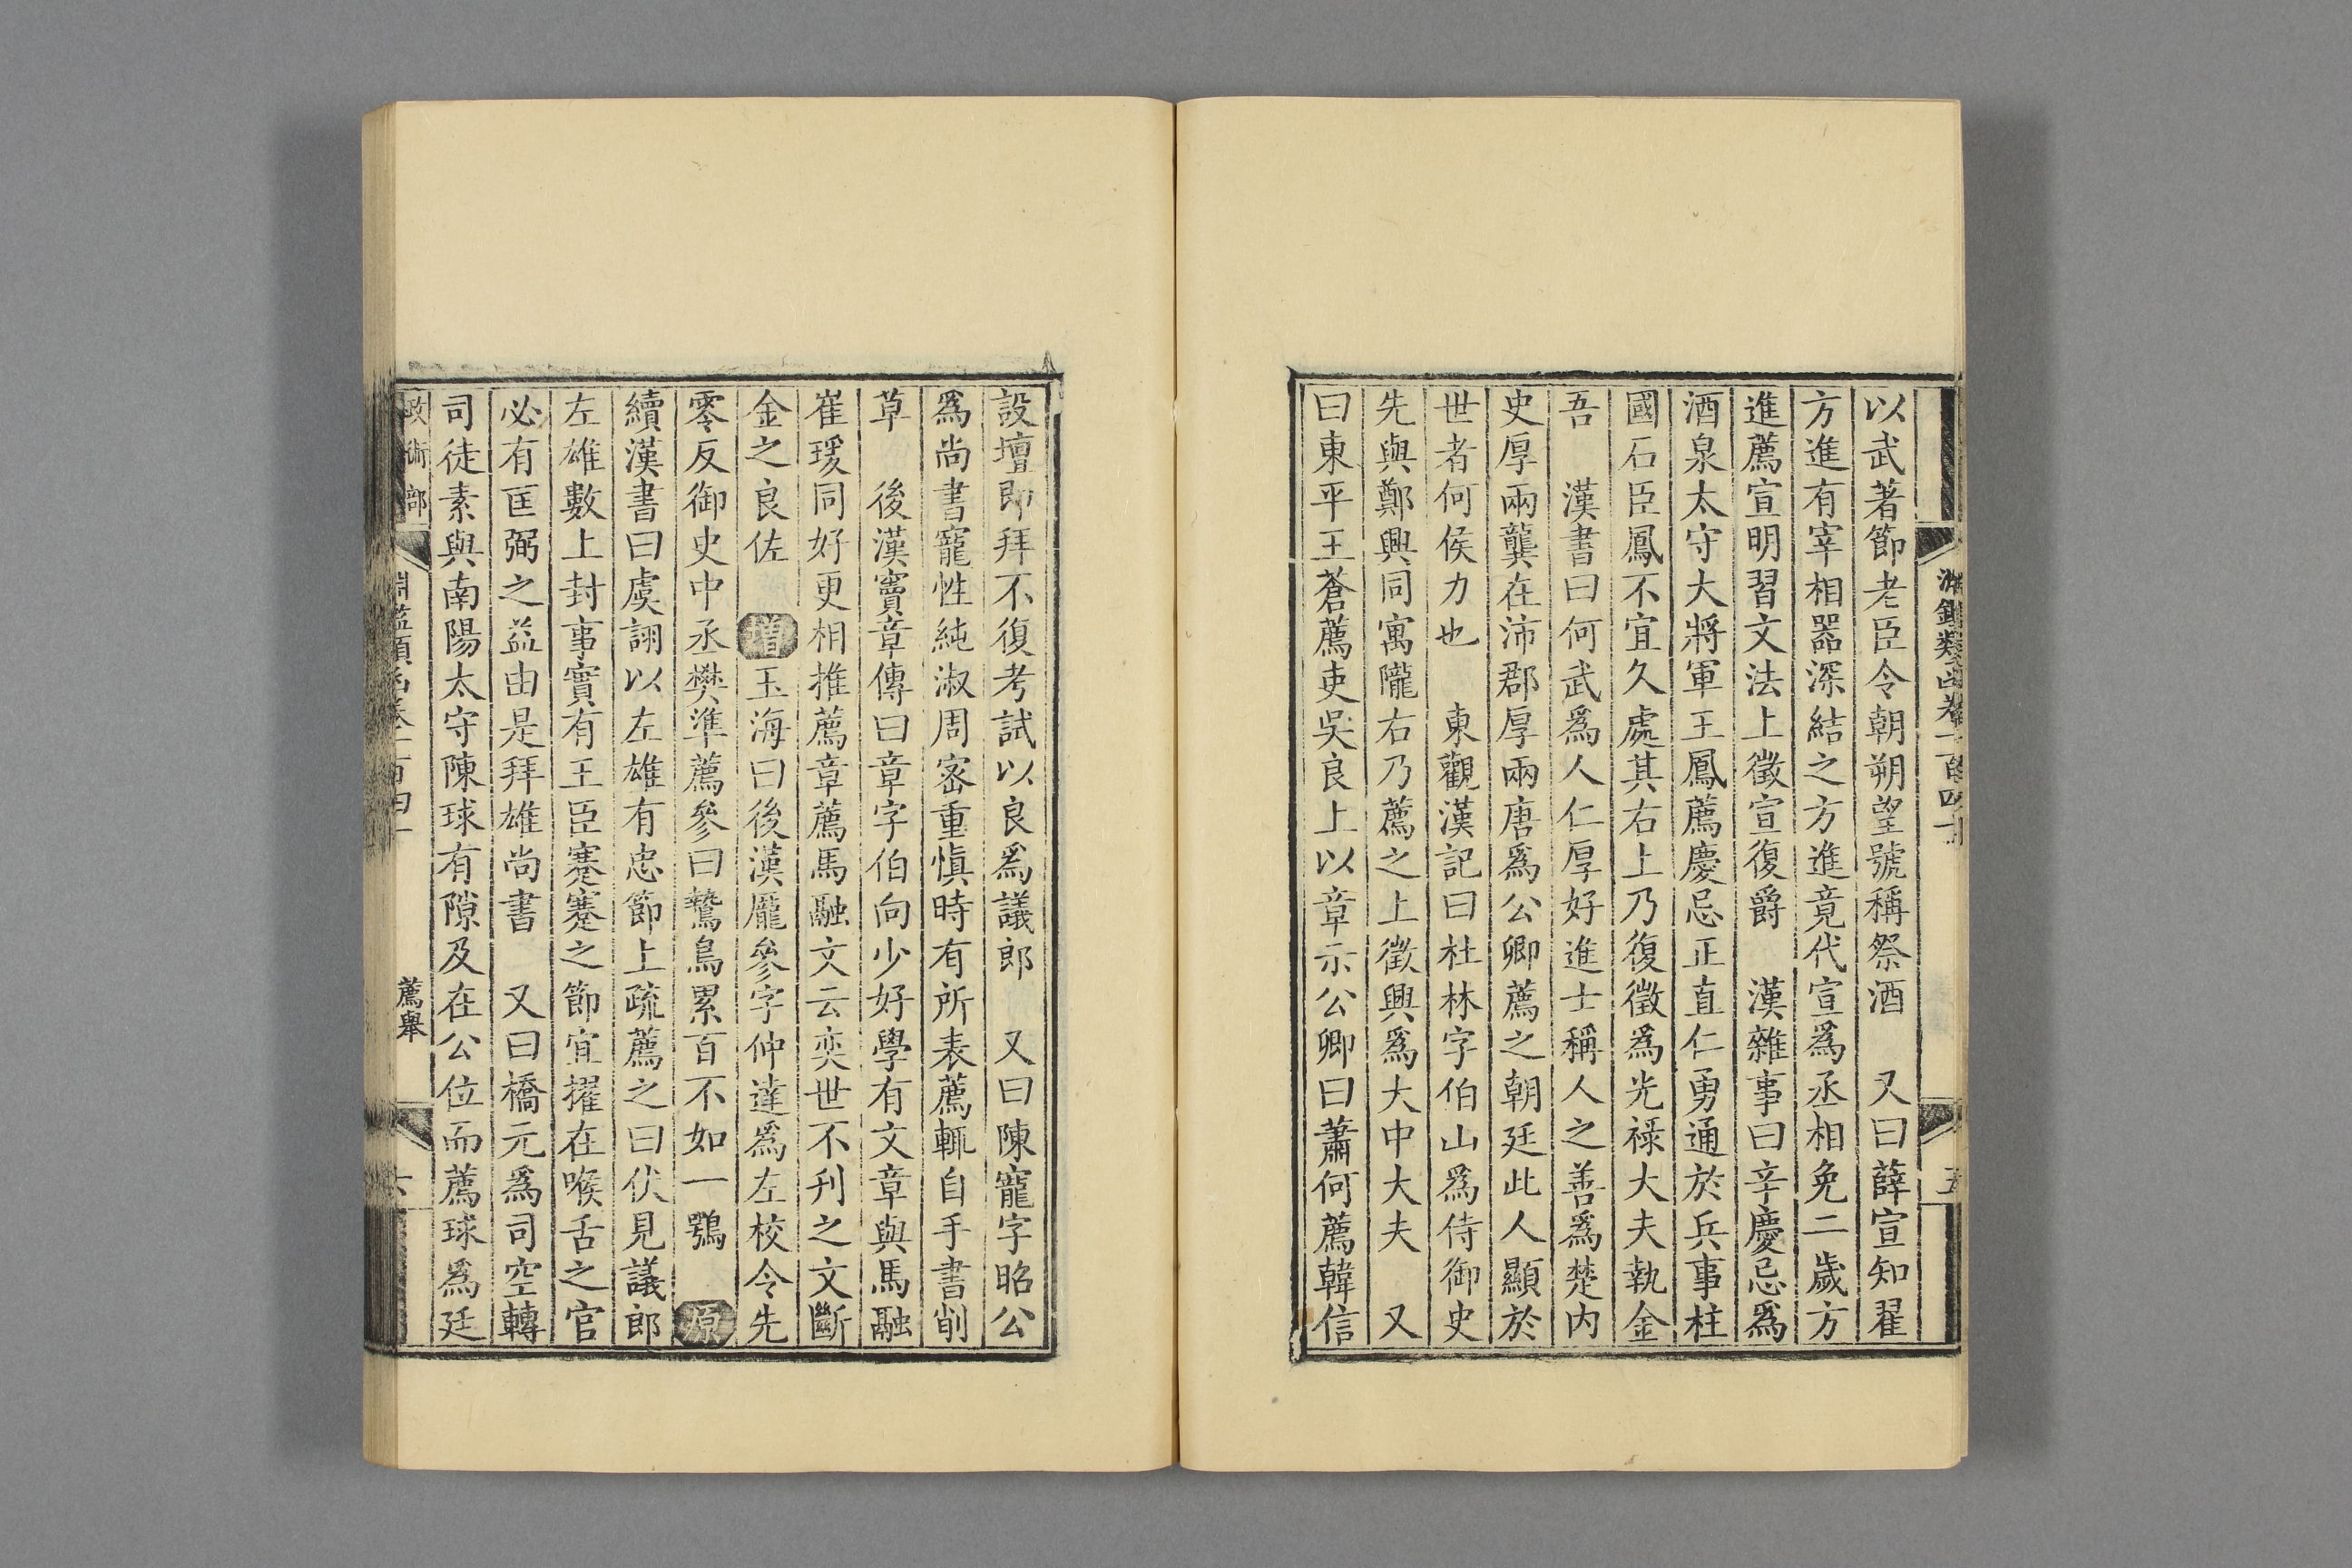 淵鑑類函卷一百四十
五
以武著節老臣令朝朔望號稱祭酒　又曰薛宣知翟
方進有宰相器深結之方進竟代宣爲丞相免二歲方
進薦宣明習文法上徵宣復爵　漢雜事曰辛慶忌爲
酒泉太守大將軍王鳳薦慶忌正直仁勇通於兵事柱
國石臣鳳不宜久處其右上乃復徵爲光祿大夫執金
吾　漢書曰何武爲人仁厚好進士稱人之善爲楚内
史厚兩龔在沛郡厚兩唐爲公卿薦之朝廷此人顯於
世者何侯力也　東觀漢記曰杜林字伯山爲侍御史
先與鄭興同寓隴右乃薦之上徵興爲大中大夫　又
曰東平王蒼薦吏吳良上以章示公卿曰蕭何薦韓信
設壇即拜不復考試以良爲議郎　又曰陳寵字昭公
爲尚書寵性純淑周密重慎時有所表薦輒自手書削
草　後漢竇章傳曰章字伯向少好學有文章與馬融
崔瑗同好更相推薦章薦馬融文云奕世不刋之文斷
金之良佐　增玉海曰後漢龐參字仲達爲左校令先
零反御史中丞樊準薦參曰鷙鳥累百不如一鶚　原
續漢書曰虞詡以左雄有忠節上疏薦之曰伏見議郎
左雄數上封事實有王臣蹇蹇之節宜擢在喉舌之官
必有匡弼之益由是拜雄尚書　又曰橋元爲司空轉
司徒素與南陽太守陳球有隙及在公位而薦球爲廷
政術部
淵鑑類函卷一百四十
薦舉
六